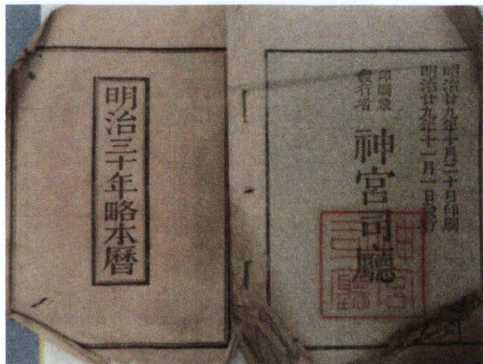 明治廿九年十月二十日印刷
明治廿九年十一月一日發行
印刷兼
發行者
神宮司廳
明治三十年略本暦